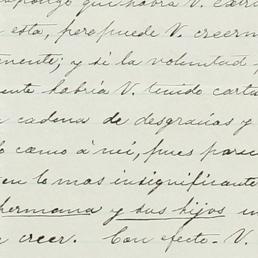 supongo que habrá V. extra
esta, pero puede V. creerm
mente; y si la voluntad
ente habría V. tenido carta
cadena de desgracias y
o como á mí, pues para
en lo mas insignificante
hermana y sus hijos
creer. Con efecto - V.